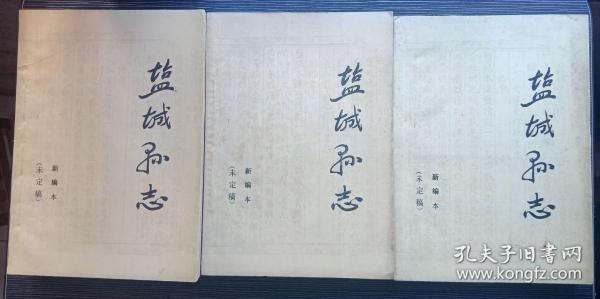 盐城县志
新编本
(未定稿)
盐城县志
新编本
(未定稿)
盐城县志
新编本
(未定稿)
孔夫子旧书网
www.kongfz.com